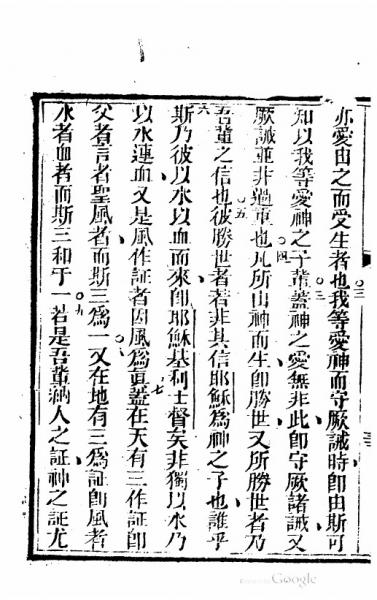 亦愛由之而受生者也我等愛神而守厥誡時即由斯可
知以我等愛神之子輩蓋神之愛無非此即守厥諸誡又
厥誡並非過重也凡所由神而生即勝世又所勝世者乃
吾輩之信也彼勝世者若非其信耶穌爲神之子也誰乎
斯乃彼以水以血而來即耶穌基利士督矣非獨以水乃
以水連血又是風作証者因風爲真蓋在天有三作証即
父者言者聖風者而斯三爲一又在地有三爲証即風者
水者血者而斯三和于一若是吾輩納人之証神之証尤
Google